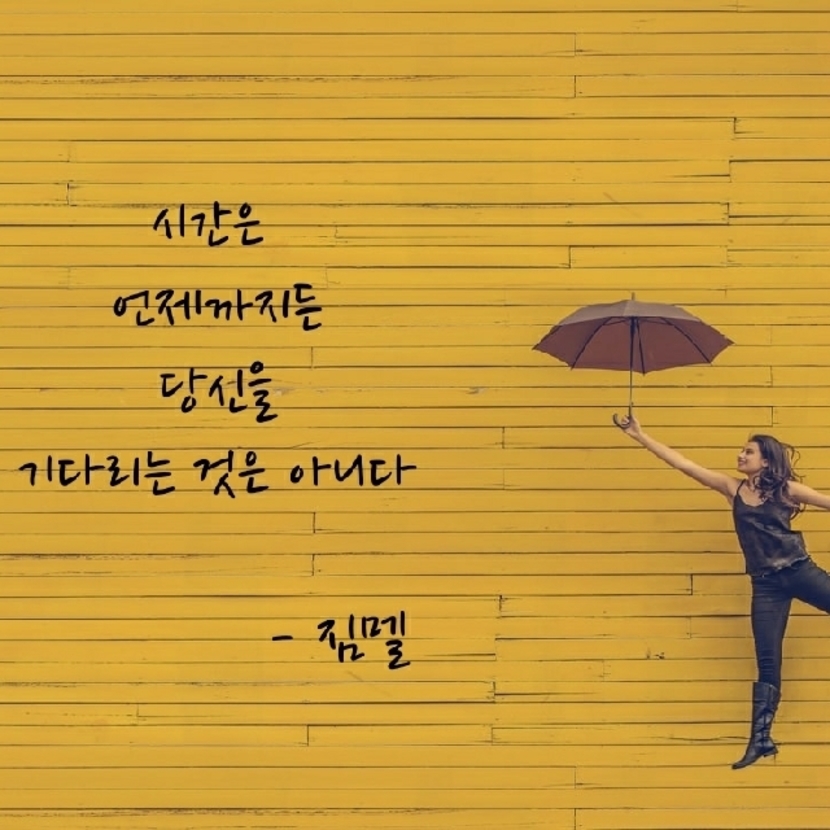 시간은
언제까지든
당신을
기다리는 것은 아니다
- 짐멜